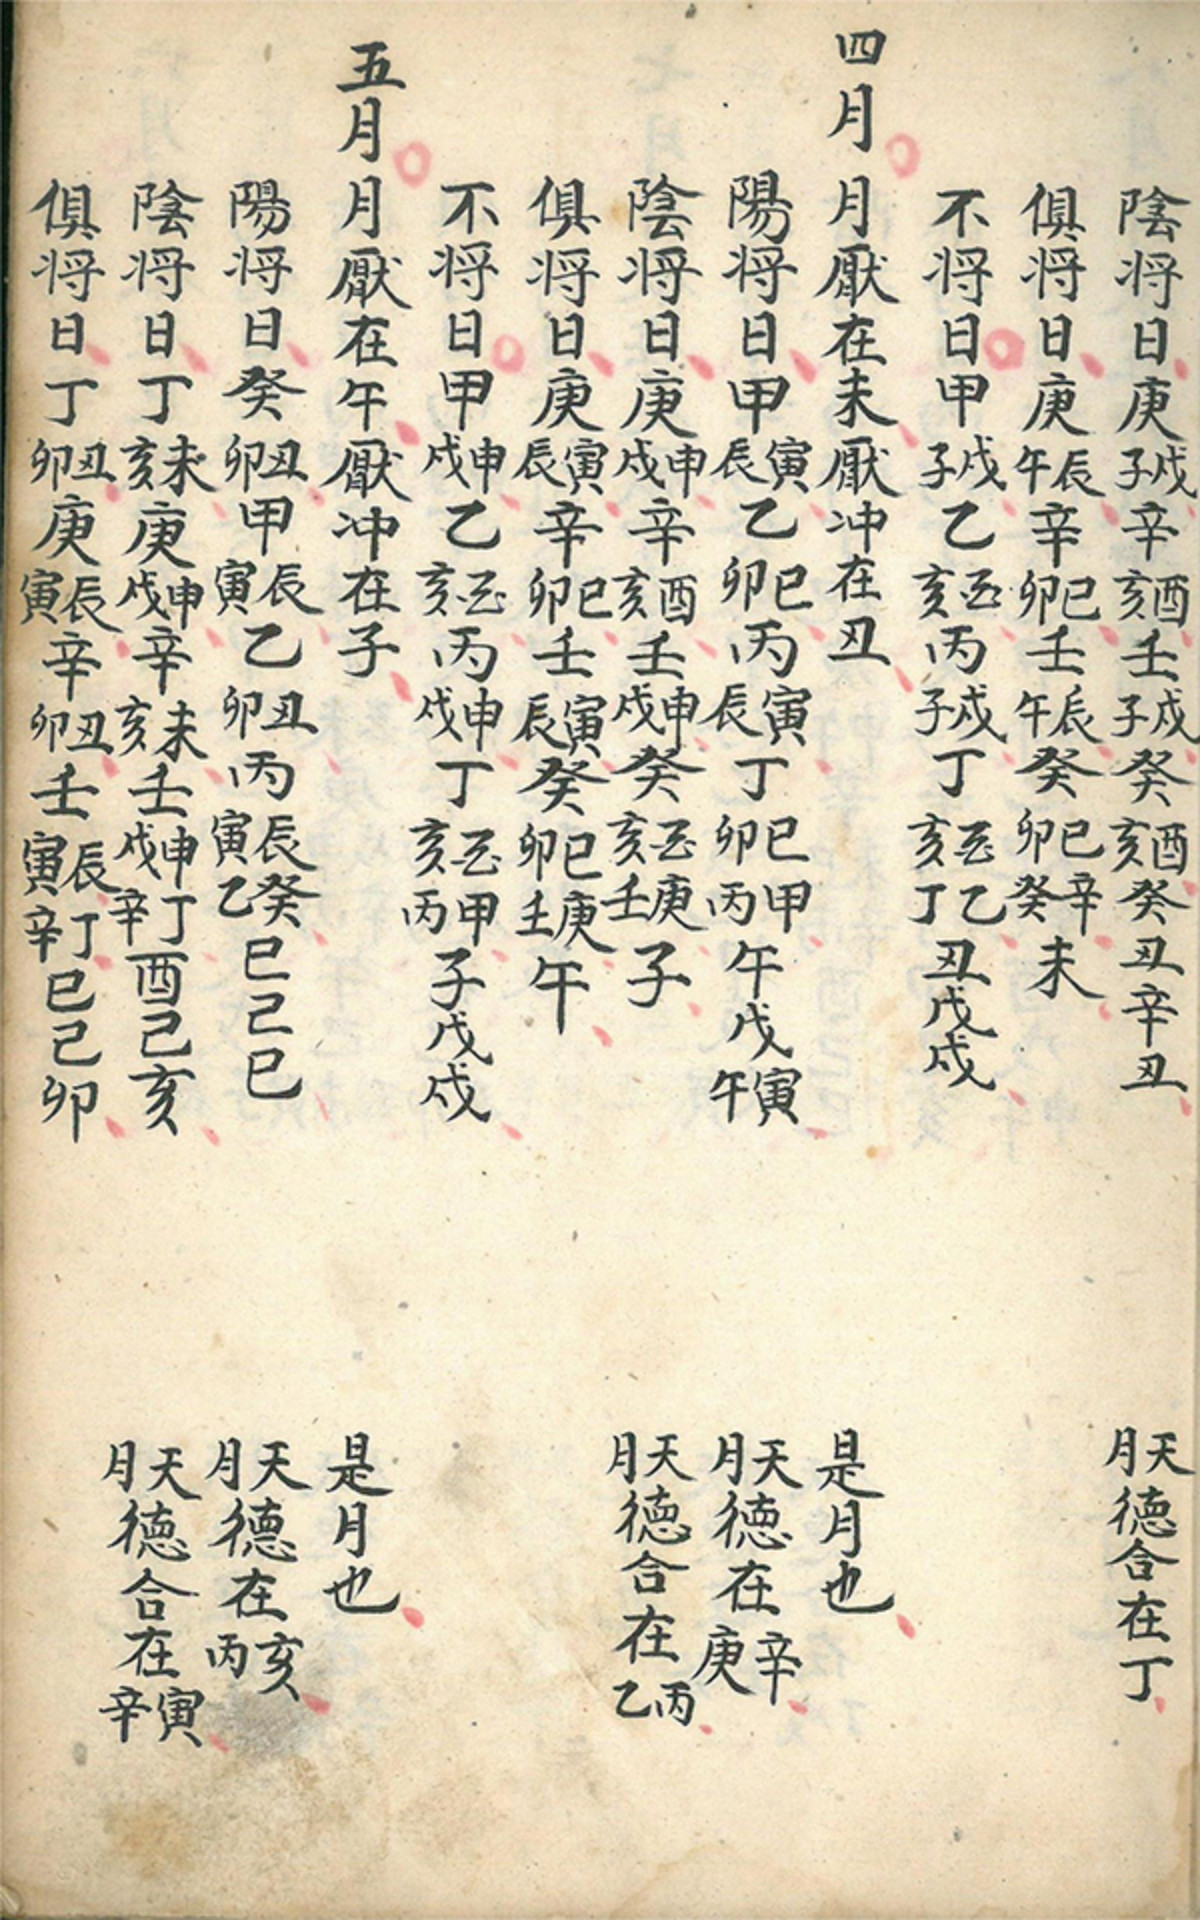 陰将日庚戌子辛酉亥壬戌子癸酉亥癸丑辛丑 天月德合在丁
俱将日庚辰午辛巳卯壬辰午癸巳卯辛癸未
不将日甲戌子乙酉亥丙戌子丁酉亥乙丁丑戊戌
四月 月厭在未厭冲在丑 是月也
陽将日甲寅辰乙巳卯丙寅辰丁巳卯甲丙午戊寅午 天月德在辛庚
陰将日庚申戌辛酉亥壬申戌癸酉亥庚壬子 天月德合在丙乙
俱将日庚寅辰辛巳卯壬寅辰癸巳卯庚壬午
不将日甲申戌乙酉亥丙申戌丁酉亥甲丙子戊戌
五月 月厭在午厭冲在子 是月也
陽将日癸丑卯甲辰寅乙丑卯丙辰寅癸乙巳己巳 天月德在亥丙
陰将日丁未亥庚申戌辛未亥壬申戌丁辛酉己亥 天月德合在寅辛
俱将日丁丑卯庚辰寅辛丑卯壬辰寅丁辛巳己卯